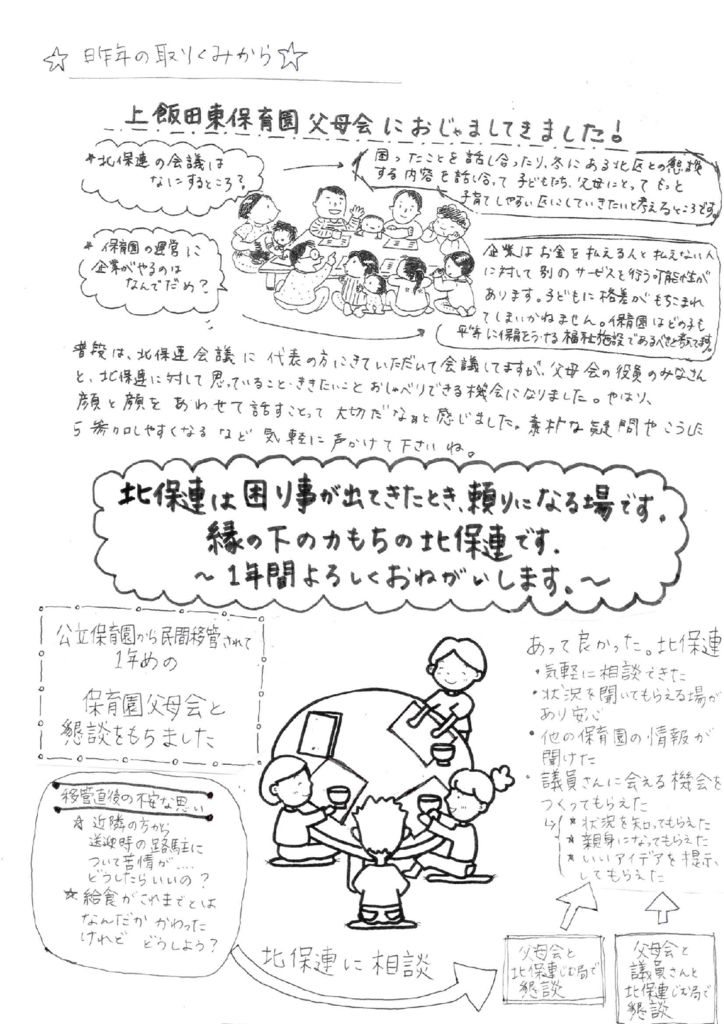 ☆ 昨年の取りくみから ☆
上飯田東保育園 父母会 におじゃましてきました!
* 北保連の会議は
なにするところ?
困ったことを話し合ったり、冬にある北区との懇談
する内容を話し合って 子どもたち、父母にとって もっと
子育てしやすい区にしていきたいと考えるところです
* 保育園の運営に
企業がやるのは
なんでだめ?
企業はお金を払える人と払えない人
に対して 別のサービスを行う可能性が
あります。子どもに格差がもちこまれ
てしまいかねません。保育園はどの子も
平等に保育をうける福祉施設であるべきと考えてます。
普段は、北保連会議に 代表の方にきていただいて会議してますが、父母会の役員のみなさん
と、北保連に対して 思っていること・ききたいこと おしゃべりできる機会になりました。やはり、
顔と顔を あわせて 話すことって 大切だなぁと感じました。素朴な疑問や こうした
ら参加しやすくなる など 気軽に 声かけて下さいね。
北保連は困り事が出てきたとき、頼りになる場です。
縁の下の力もちの北保連です.
~1年間よろしくおねがいします。~
公立保育園から民間移管されて
1年めの
保育園父母会と
懇談をもちました
移管直後の不安な思い
☆ 近隣の方から
送迎時の路駐に
ついて苦情が....
どうしたらいいの?
☆ 給食がこれまでとは
なんだか かわった
けれど どうしよう?
北保連に相談
あって良かった。北保連
・気軽に相談できた
・状況を聞いてもらえる場が
あり安心
・他の保育園の情報が
聞けた
・議員さんに会える機会を
つくってもらえた
↳ * 状況を知ってもらえた
* 親身になってもらえた
* いいアイデアを提示
してもらえた
父母会と
北保連じむ局で
懇談
父母会と
議員さんと
北保連じむ局で
懇談